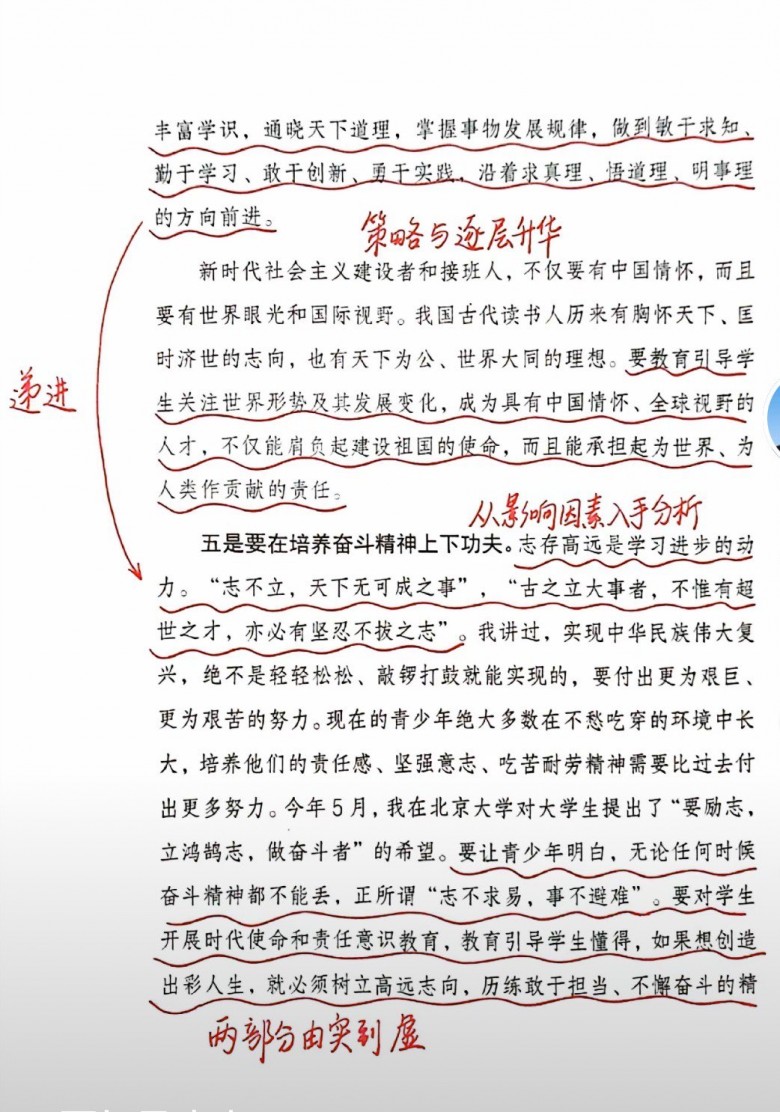 丰富学识，通晓天下道理，掌握事物发展规律，做到敏于求知、
勤于学习、敢于创新、勇于实践，沿着求真理、悟道理、明事理
的方向前进。
策略与逐层升华
新时代社会主义建设者和接班人，不仅要有中国情怀，而且
要有世界眼光和国际视野。我国古代读书人历来有胸怀天下、匡
时济世的志向，也有天下为公、世界大同的理想。要教育引导学
递进
生关注世界形势及其发展变化，成为具有中国情怀、全球视野的
人才，不仅能肩负起建设祖国的使命，而且能承担起为世界、为
人类作贡献的责任。
从影响因素入手分析
五是要在培养奋斗精神上下功夫。志存高远是学习进步的动
力。“志不立，天下无可成之事”，“古之立大事者，不惟有超
世之才，亦必有坚忍不拔之志”。我讲过，实现中华民族伟大复
兴，绝不是轻轻松松、敲锣打鼓就能实现的，要付出更为艰巨、
更为艰苦的努力。现在的青少年绝大多数在不愁吃穿的环境中长
大，培养他们的责任感、坚强意志、吃苦耐劳精神需要比过去付
出更多努力。今年5月，我在北京大学对大学生提出了“要励志，
立鸿鹄志，做奋斗者”的希望。要让青少年明白，无论任何时候
奋斗精神都不能丢，正所谓“志不求易，事不避难”。要对学生
开展时代使命和责任意识教育，教育引导学生懂得，如果想创造
出彩人生，就必须树立高远志向，历练敢于担当、不懈奋斗的精
两部分由实到虚